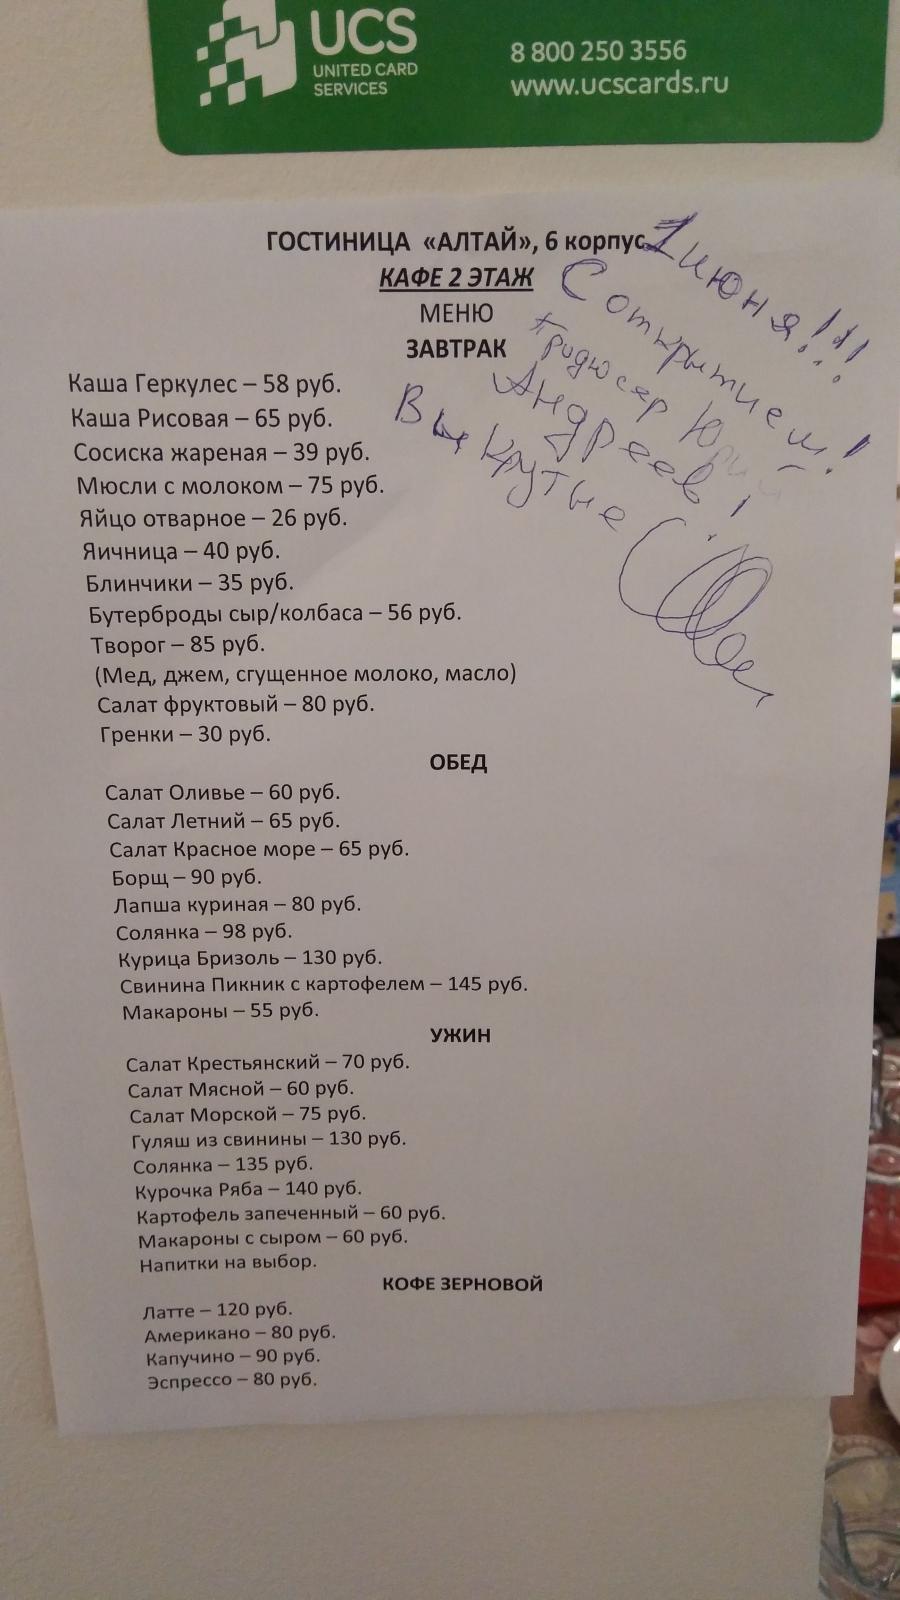 UCS
UNITED CARD
SERVICES
8 800 250 3556
www.ucscards.ru
ГОСТИНИЦА «АЛТАЙ», 6 корпус
КАФЕ 2 ЭТАЖ
МЕНЮ
1 июня!!!
С открытием!
Продюсер Юрий
Андреев!
Вы крутые
ЗАВТРАК
Каша Геркулес – 58 руб.
Каша Рисовая – 65 руб.
Сосиска жареная – 39 руб.
Мюсли с молоком – 75 руб.
Яйцо отварное – 26 руб.
Яичница – 40 руб.
Блинчики – 35 руб.
Бутерброды сыр/колбаса – 56 руб.
Творог – 85 руб.
(Мед, джем, сгущенное молоко, масло)
Салат фруктовый – 80 руб.
Гренки – 30 руб.
ОБЕД
Салат Оливье – 60 руб.
Салат Летний – 65 руб.
Салат Красное море – 65 руб.
Борщ – 90 руб.
Лапша куриная – 80 руб.
Солянка – 98 руб.
Курица Бризоль – 130 руб.
Свинина Пикник с картофелем – 145 руб.
Макароны – 55 руб.
УЖИН
Салат Крестьянский – 70 руб.
Салат Мясной – 60 руб.
Салат Морской – 75 руб.
Гуляш из свинины – 130 руб.
Солянка – 135 руб.
Курочка Ряба – 140 руб.
Картофель запеченный – 60 руб.
Макароны с сыром – 60 руб.
Напитки на выбор.
КОФЕ ЗЕРНОВОЙ
Латте – 120 руб.
Американо – 80 руб.
Капучино – 90 руб.
Эспрессо – 80 руб.